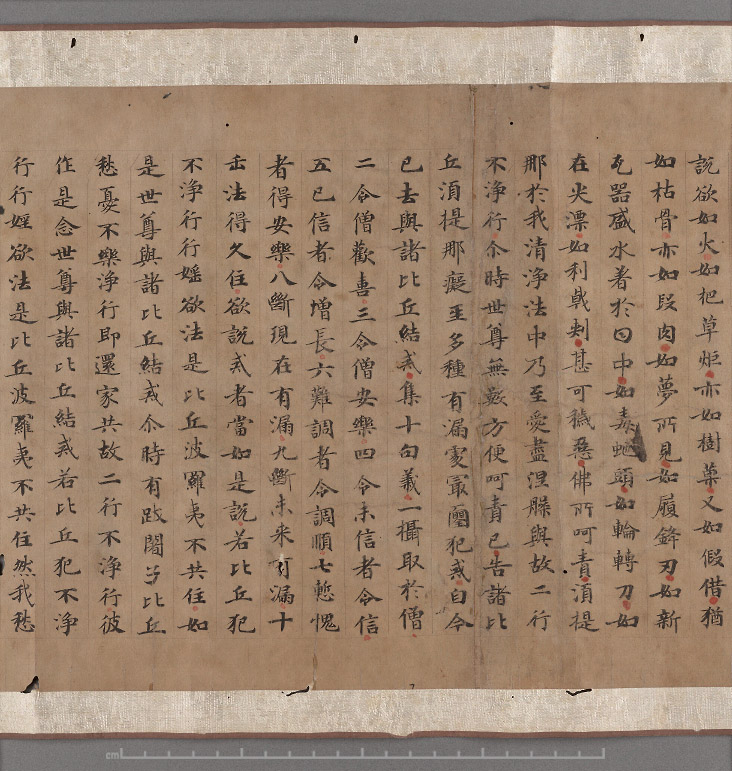 說欲如火如把草炬亦如樹菓又如假借猶
如枯骨亦如段肉如夢所見如履鋒刃如新
瓦器盛水著於日中如毒虵頭如輪轉刀如
在尖漂如利戟刺甚可穢惡佛所呵責須提
那於我清淨法中乃至愛盡涅槃與故二行
不淨行尒時世尊無數方便呵責已告諸比
丘須提那癡𫝑多種有漏處最初犯戒自今
已去與諸比丘結戒集十句義一攝取於僧
二令僧歡喜三令僧安樂四令未信者令信
五已信者令增長六難調者令調順七慙愧
者得安樂八斷現在有漏九斷未來有漏十
正法得久住欲說戒者當如是說若比丘犯
不淨行行婬欲法是比丘波羅夷不共住如
是世尊與諸比丘結戒尒時有跋闍子比丘
愁憂不樂淨行即還家共故二行不淨行彼
作是念世尊與諸比丘結戒若比丘犯不淨
行行婬欲法是比丘波羅夷不共住然我愁